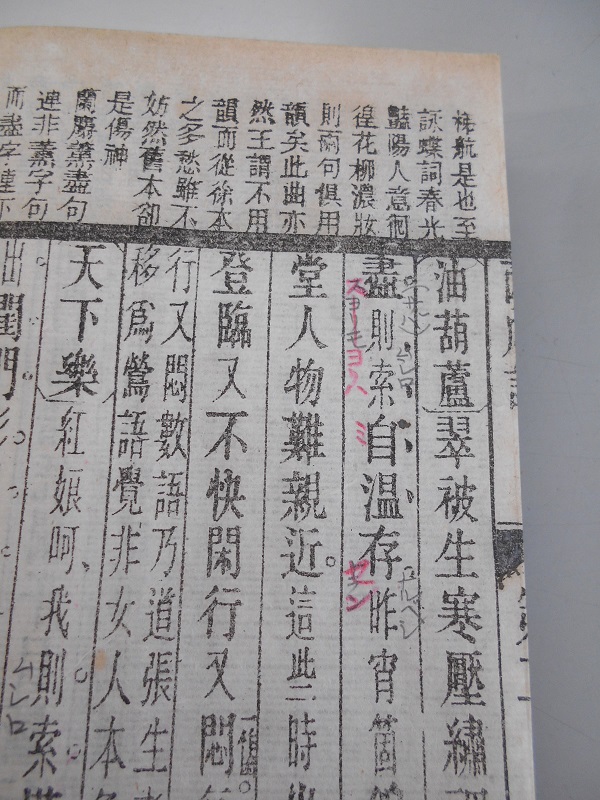 梯航是也至
詠蝶詞春光
豔陽人意徊
徨花柳濃妝
則兩句俱用
韻矣此曲亦
然王謂不用
韻而從徐本
之多愁雖不
妨然舊本卻
是傷神
蘭麝薰盡句
連非薰字句
而盡字連下
油葫蘆翠被生寒壓繡
盡則索自溫存昨宵箇
スヨーモヨハ ミ
ゼン
ムシロ
堂人物難親近。這些時
登臨又不快閑行又悶
行又悶數語乃道張生
移為鶯語覺非女人本
天下樂紅娘呵、我則索
ムシロ
出閨門